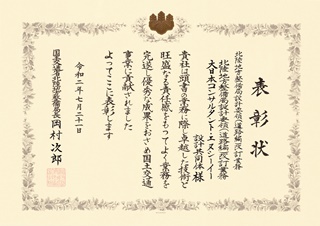 表彰状
北陸地方整備局設計要領(道路編)改訂業務
北陸地方整備局設計要領(道路編)改訂業務
大日本コンサルタント・エヌシーイー
設計共同体 様
貴社は頭書の業務に際し卓越した技術と
旺盛なる責任感をもってよく業務を
完遂し優秀な成果をおさめ国土交通
事業に貢献されました
よってここに表彰します
令和二年七月二十一日
国土交通省北陸地方整備局長 岡村次郎